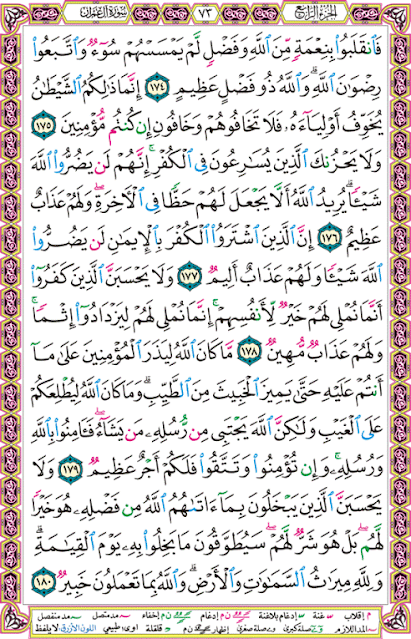 الجزء الرابع ٧٣ سورة آل عمران
فَٱنقَلَبُوا۟ بِنِعْمَةٍ مِّنَ ٱللَّهِ وَفَضْلٍ لَّمْ يَمْسَسْهُمْ سُوٓءٌ وَٱتَّبَعُوا۟
رِضْوَٰنَ ٱللَّهِ ۗ وَٱللَّهُ ذُو فَضْلٍ عَظِيمٍ ١٧٤ إِنَّمَا ذَٰلِكُمُ ٱلشَّيْطَٰنُ
يُخَوِّفُ أَوْلِيَآءَهُۥ فَلَا تَخَافُوهُمْ وَخَافُونِ إِن كُنتُم مُّؤْمِنِينَ ١٧٥
وَلَا يَحْزُنكَ ٱلَّذِينَ يُسَٰرِعُونَ فِى ٱلْكُفْرِ ۚ إِنَّهُمْ لَن يَضُرُّوا۟ ٱللَّهَ
شَيْـًٔا ۗ يُرِيدُ ٱللَّهُ أَلَّا يَجْعَلَ لَهُمْ حَظًّا فِى ٱلْـَٔاخِرَةِ ۖ وَلَهُمْ عَذَابٌ
عَظِيمٌ ١٧٦ إِنَّ ٱلَّذِينَ ٱشْتَرَوُا۟ ٱلْكُفْرَ بِٱلْإِيمَٰنِ لَن يَضُرُّوا۟
ٱللَّهَ شَيْـًٔا وَلَهُمْ عَذَابٌ أَلِيمٌ ١٧٧ وَلَا يَحْسَبَنَّ ٱلَّذِينَ كَفَرُوٓا۟
أَنَّمَا نُمْلِى لَهُمْ خَيْرٌ لِّأَنفُسِهِمْ ۚ إِنَّمَا نُمْلِى لَهُمْ لِيَزْدَادُوٓا۟ إِثْمًا ۚ
وَلَهُمْ عَذَابٌ مُّهِينٌ ١٧٨ مَّا كَانَ ٱللَّهُ لِيَذَرَ ٱلْمُؤْمِنِينَ عَلَىٰ مَآ
أَنتُمْ عَلَيْهِ حَتَّىٰ يَمِيزَ ٱلْخَبِيثَ مِنَ ٱلطَّيِّبِ ۗ وَمَا كَانَ ٱللَّهُ لِيُطْلِعَكُمْ
عَلَى ٱلْغَيْبِ وَلَٰكِنَّ ٱللَّهَ يَجْتَبِى مِن رُّسُلِهِۦ مَن يَشَآءُ ۖ فَـَٔامِنُوا۟ بِٱللَّهِ
وَرُسُلِهِۦ ۚ وَإِن تُؤْمِنُوا۟ وَتَتَّقُوا۟ فَلَكُمْ أَجْرٌ عَظِيمٌ ١٧٩ وَلَا
يَحْسَبَنَّ ٱلَّذِينَ يَبْخَلُونَ بِمَآ ءَاتَىٰهُمُ ٱللَّهُ مِن فَضْلِهِۦ هُوَ خَيْرًا
لَّهُم ۖ بَلْ هُوَ شَرٌّ لَّهُمْ ۖ سَيُطَوَّقُونَ مَا بَخِلُوا۟ بِهِۦ يَوْمَ ٱلْقِيَٰمَةِ ۗ
وَلِلَّهِ مِيرَٰثُ ٱلسَّمَٰوَٰتِ وَٱلْأَرْضِ ۗ وَٱللَّهُ بِمَا تَعْمَلُونَ خَبِيرٌ ١٨٠